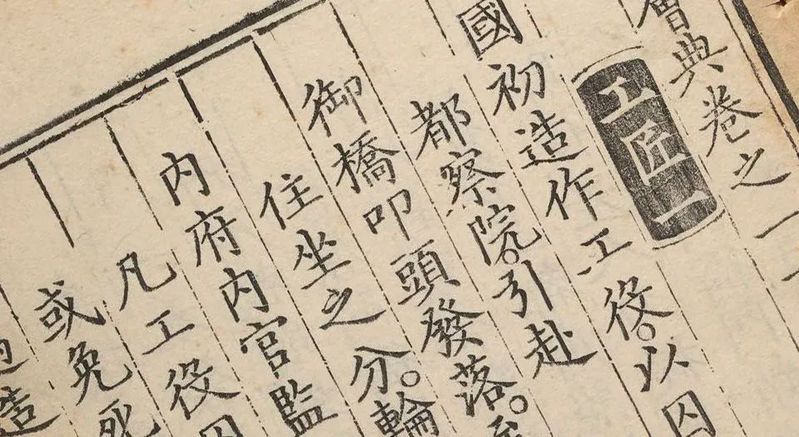 會典卷之一
工匠一
國初造作工役。以囚
都察院。引赴
御橋叩頭發落。
住坐之分。輪
內府內官監
凡工役囚
或免死
造